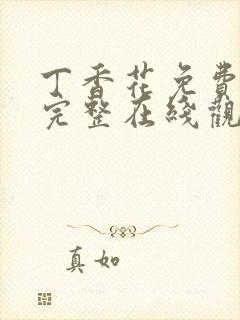 丁香花免費
完整在綫觀
真如